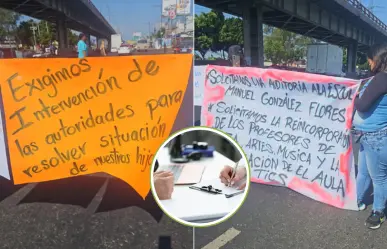 Exigimos
Intervención de
las autoridades para
resolver situación
de nuestros hij
SOLICITAMOS UNA AUDITORIA A LA ESCUE
MANUEL GONZÁLEZ FLORES
*SOLICITAMOS LA REINCORPOR
DE LOS PROFESORES DE
ARTES, MUSICA Y LA
ACIÓN DE EL AULA
TICS